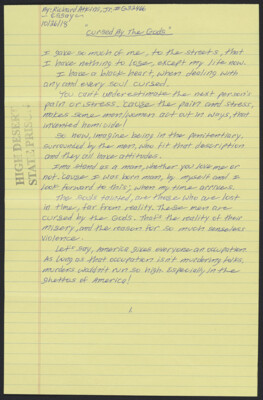 By: Richard Adkins, Jr. #
Essay
10/26/18
"Cursed By The Gods"
I gave so much of me, to the streets, that
I have nothing to lose, except my life now.
I have a black heart, when dealing with
any and every soul cursed.
You can't underestimate the next person's
pain or stress. Cause the pain and stress,
makes some men/women act out in ways, that
warrant homicide!
So now, imagine being in the penitentiary,
surrounded by the men, who fit that description
and they all have attitudes.
I'ma stand as a man, whether you love me or
not. Cause I was born mann, by myself and I
look forward to this, when my time arrives.
The souls tainted, are those who are lost
in time, far from reality. These men are
cursed by the Gods. That's the reality of their
misery, and the reason for so much senseless
violence.
Let's say, America gives everyone an occupation.
As long as that occupation isn't murdering folks,
murders wouldn't run so high. Especially in the
ghettos of America!
1
HIGH DESERT
STATE PRISON